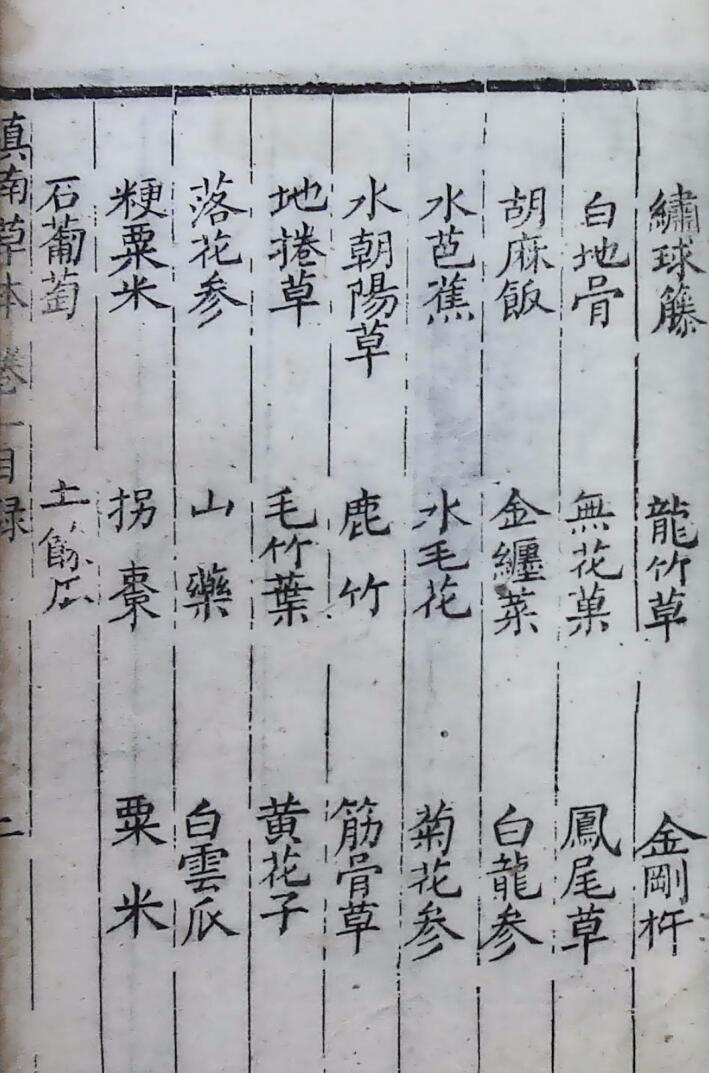 繡球籐 龍竹草 金剛杵
白地骨 無花菓 鳳尾草
胡麻飯 金纒菜 白龍参
水芭蕉 水毛花 菊花参
水朝陽草 鹿竹 筋骨草
地捲草 毛竹葉 黄花子
落花参 山藥 白雲瓜
粳粟米 拐棗 粟米
石葡萄 土餘瓜
滇南草本 卷一目録 二